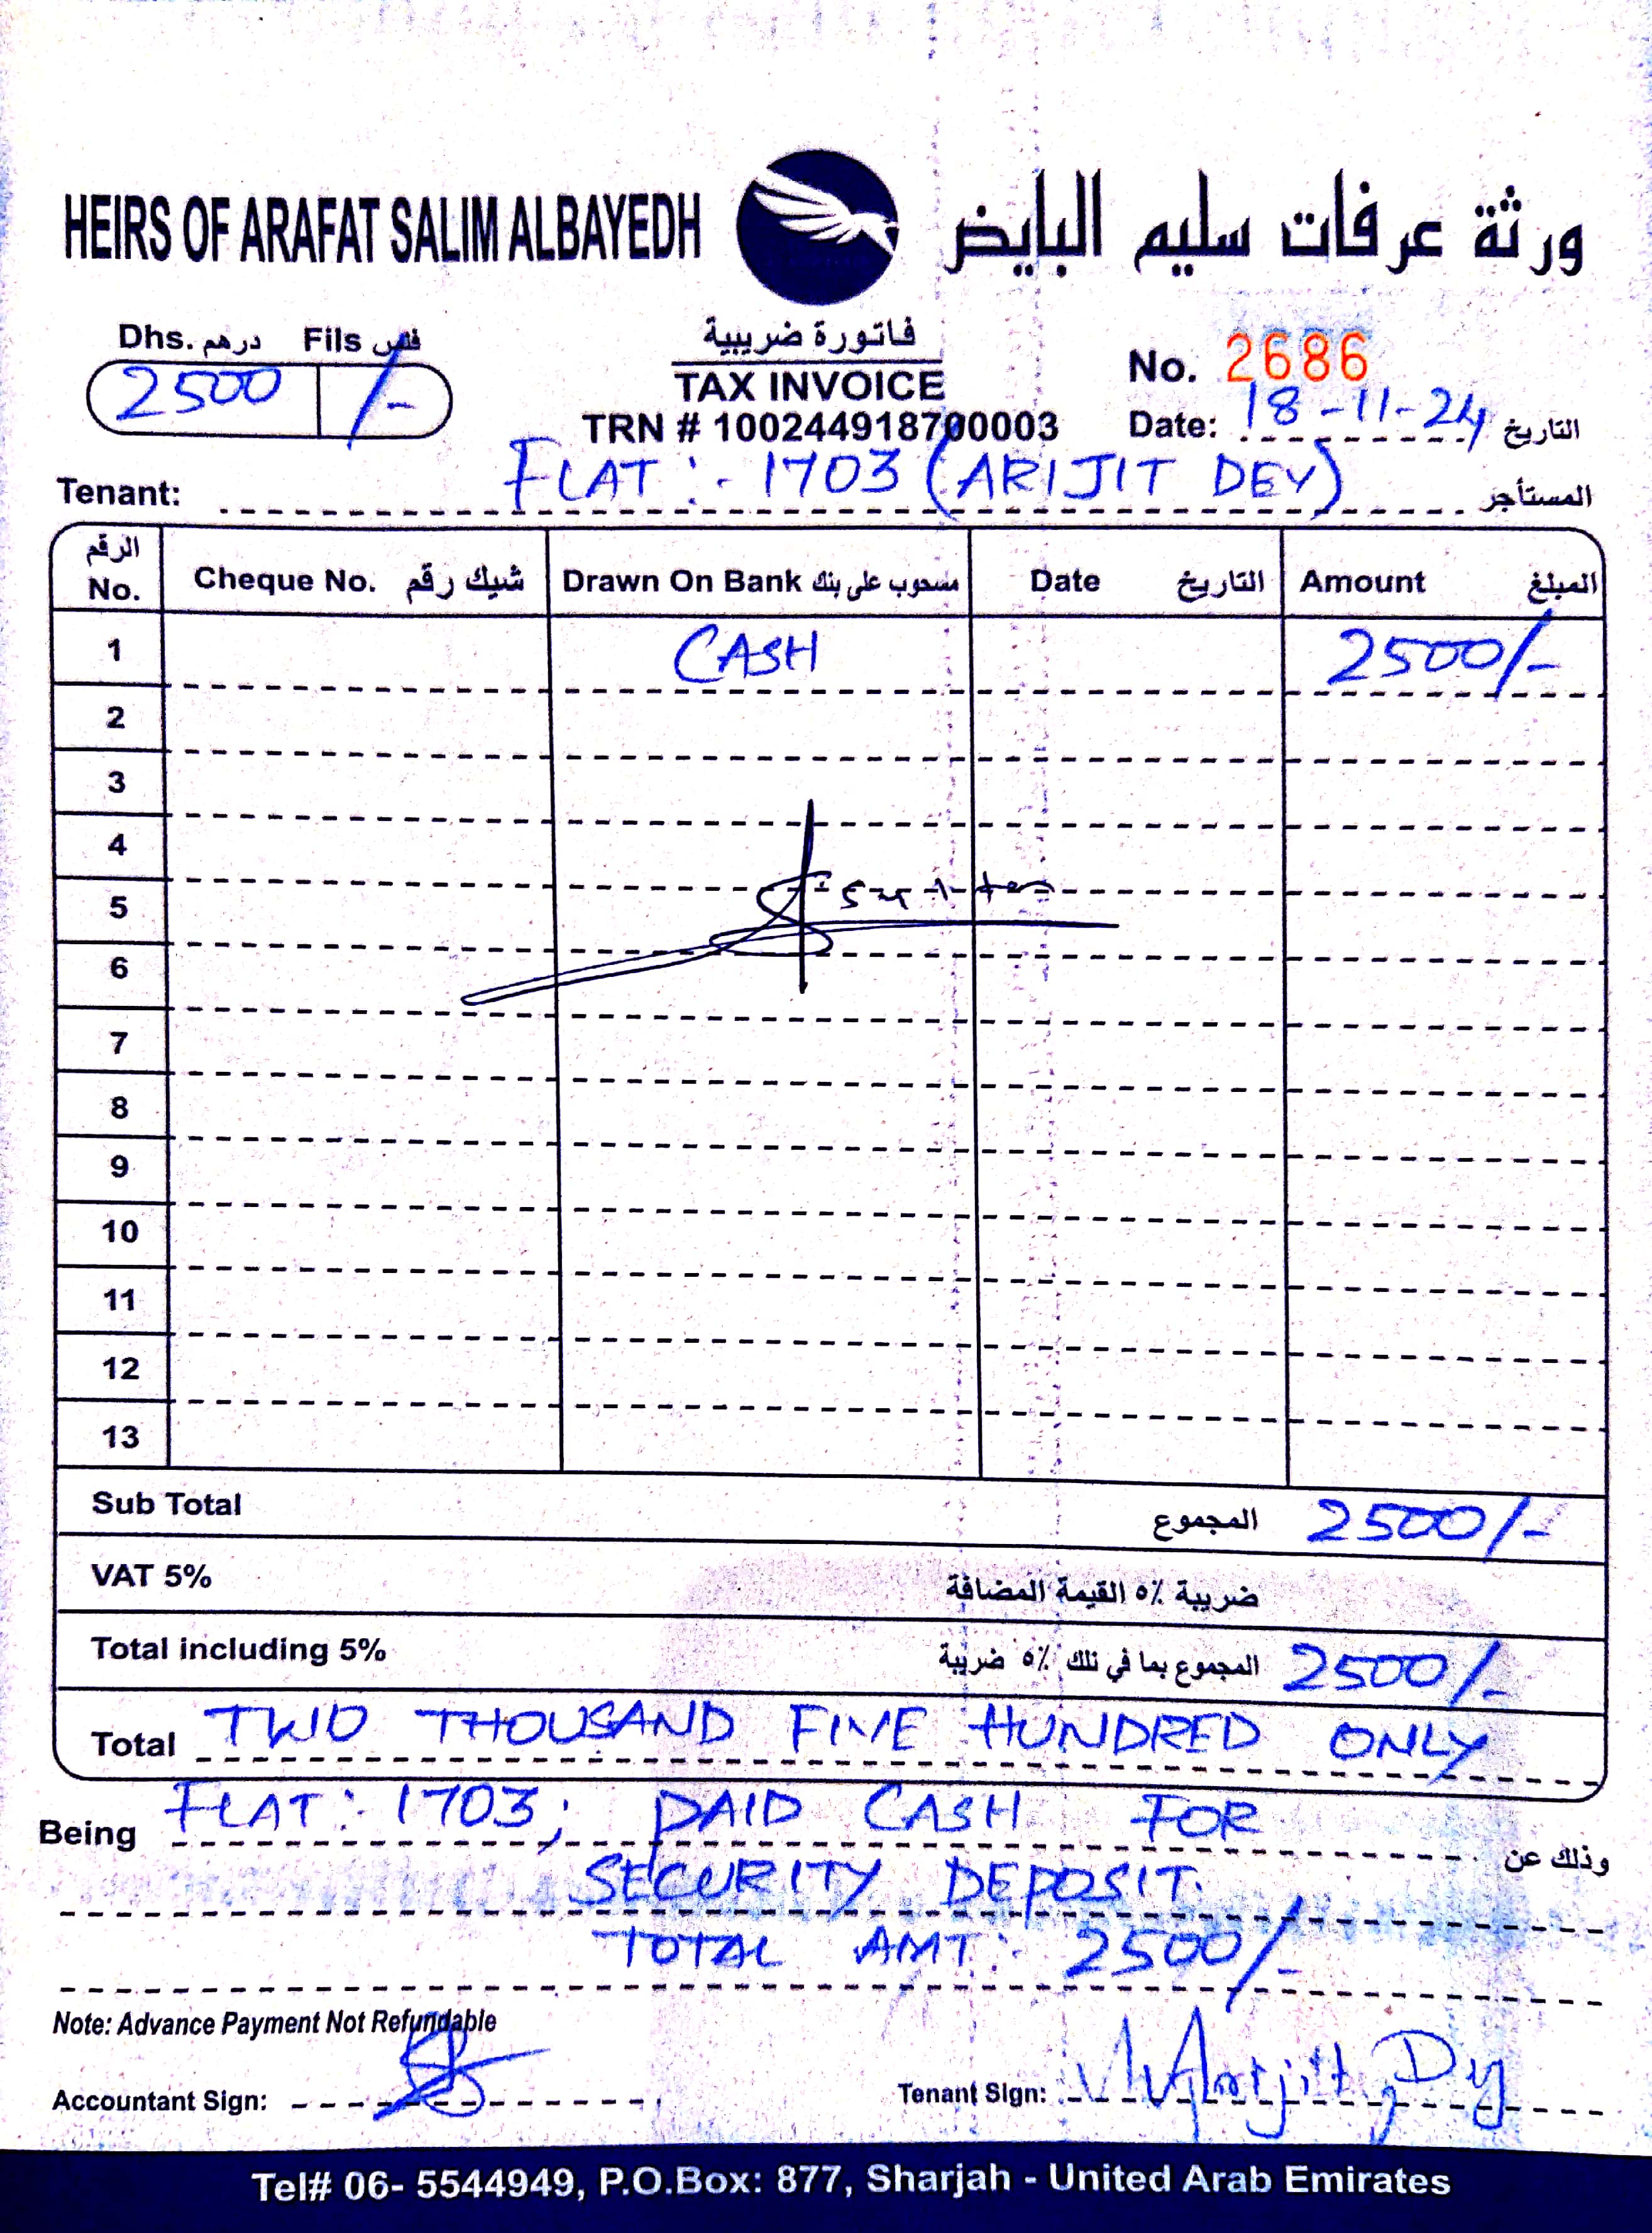 HEIRS OF ARAFAT SALIM ALBAYEDH ورثة عرفات سليم البايض
Dhs. درهم Fils فلس
2500 /-
فاتورة ضريبية
TAX INVOICE
TRN # 100244918700003
No. 2686
Date: 18-11-24 التاريخ
Tenant: FLAT:- 1703 (ARIJIT DEV) المستأجر
الرقم No. Cheque No. شيك رقم Drawn On Bank مسحوب على بنك Date التاريخ Amount المبلغ
1 CASH 2500/-
2
3
4
5
6
7
8
9
10
11
12
13
Sub Total المجموع 2500/-
VAT 5% ضريبة ٥٪ القيمة المضافة
Total including 5% المجموع بما في تلك ٥٪ ضريبة 2500/-
Total TWO THOUSAND FIVE HUNDRED ONLY
Being FLAT: 1703; PAID CASH FOR وذلك عن
SECURITY DEPOSIT.
TOTAL AMT: 2500/-
Note: Advance Payment Not Refundable
Accountant Sign:
Tenant Sign: Arijit Dey
Tel# 06- 5544949, P.O.Box: 877, Sharjah - United Arab Emirates